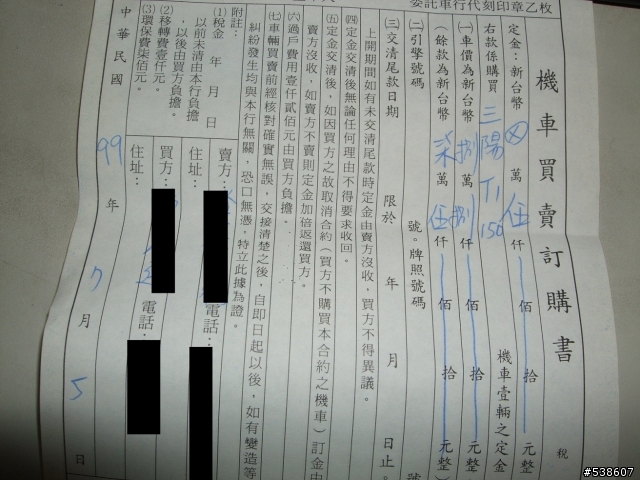 委託車行代刻印章乙枚
機車買賣訂購書
稅
定金：新台幣 萬 伍 仟 佰 拾 元整
右款係購買 三陽 T1 150 機車壹輛之定金
㈠車價為新台幣 捌 萬 捌 仟 佰 拾 元整
(餘款為新台幣 柒 萬 伍 仟 佰 拾 元整)
㈡引擎號碼 號。牌照號碼 號
㈢交清尾款日期 限於 年 月 日止。
上開期間如有未交清尾款時定金由賣方沒收，買方不得異議。
㈣定金交清後無論任何理由不得要求收回。
㈤定金交清後，如因買方之故取消合約(買方不購買本合約之機車)訂金由
賣方沒收，如賣方不賣則定金加倍返還買方。
㈥過戶費用壹仟貳佰元由買方負擔。
㈦車輛買賣前經核對確實無誤，交接清楚之後，自即日起以後，如有變造等
糾紛發生均與本行無關，恐口無憑，特立此據為證。
附註：
⑴稅金 年 月 日
以前未清由本行負擔
，以後由買方負擔。
⑵移轉費壹仟元。
⑶環保費柒佰元。
賣方： 電話：
住址：
買方： 電話：
住址：
中華民國 99 年 7 月 5 日
#538607